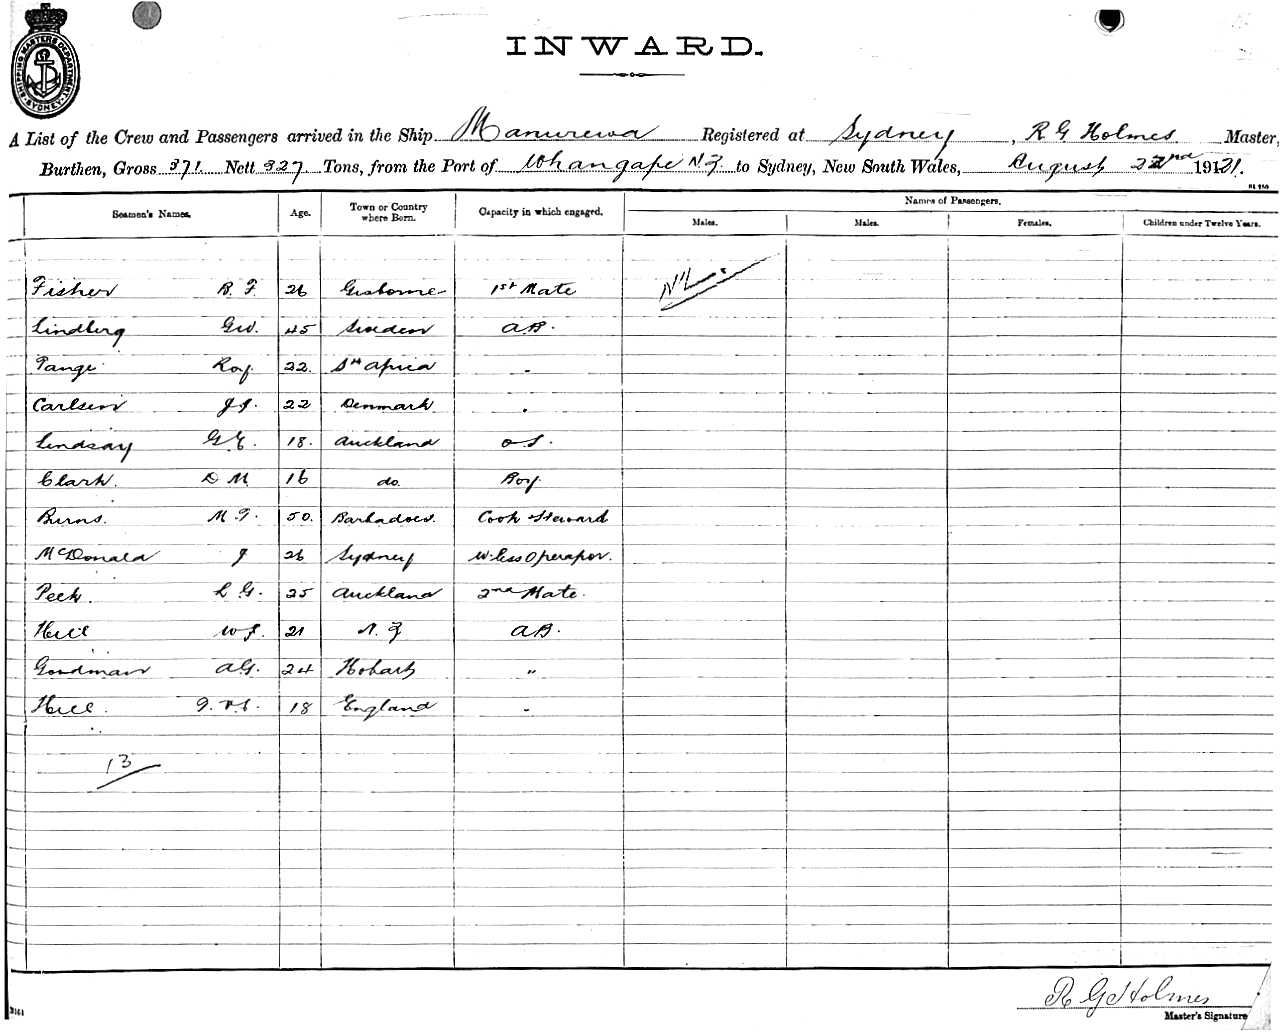 SHIPPING MASTERS DEPARTMENT SYDNEY
INWARD.
A List of the Crew and Passengers arrived in the Ship Manurewa Registered at Sydney, R G Holmes Master,
Burthen, Gross 371 Nett 327 Tons, from the Port of Whangape N Z. to Sydney, New South Wales, August 22nd 1921.
Seamen's Names. Age. Town or Country where Born. Capacity in which engaged. Names of Passengers.
Males. Males. Females. Children under Twelve Years.
Fisher 26 Gisborne 1st Mate Nil
Lindberg GW. 45 Sweden AB.
Tange Roy. 22. Sth Africa "
Carlsen 22 Denmark "
Lindsay G.E. 18. Auckland O S.
Clark. D M. 16 do. Boy.
Burns. 50. Barbadoes. Cook & Steward
McDonald J 26 Sydney W. less Operator.
Peek. L G. 25 Auckland 2nd Mate.
Hill W J. 21 N. Z AB.
Goodman A G. 24 Hobart "
Hill. 18 England "
13
R G Holmes
Master's Signature